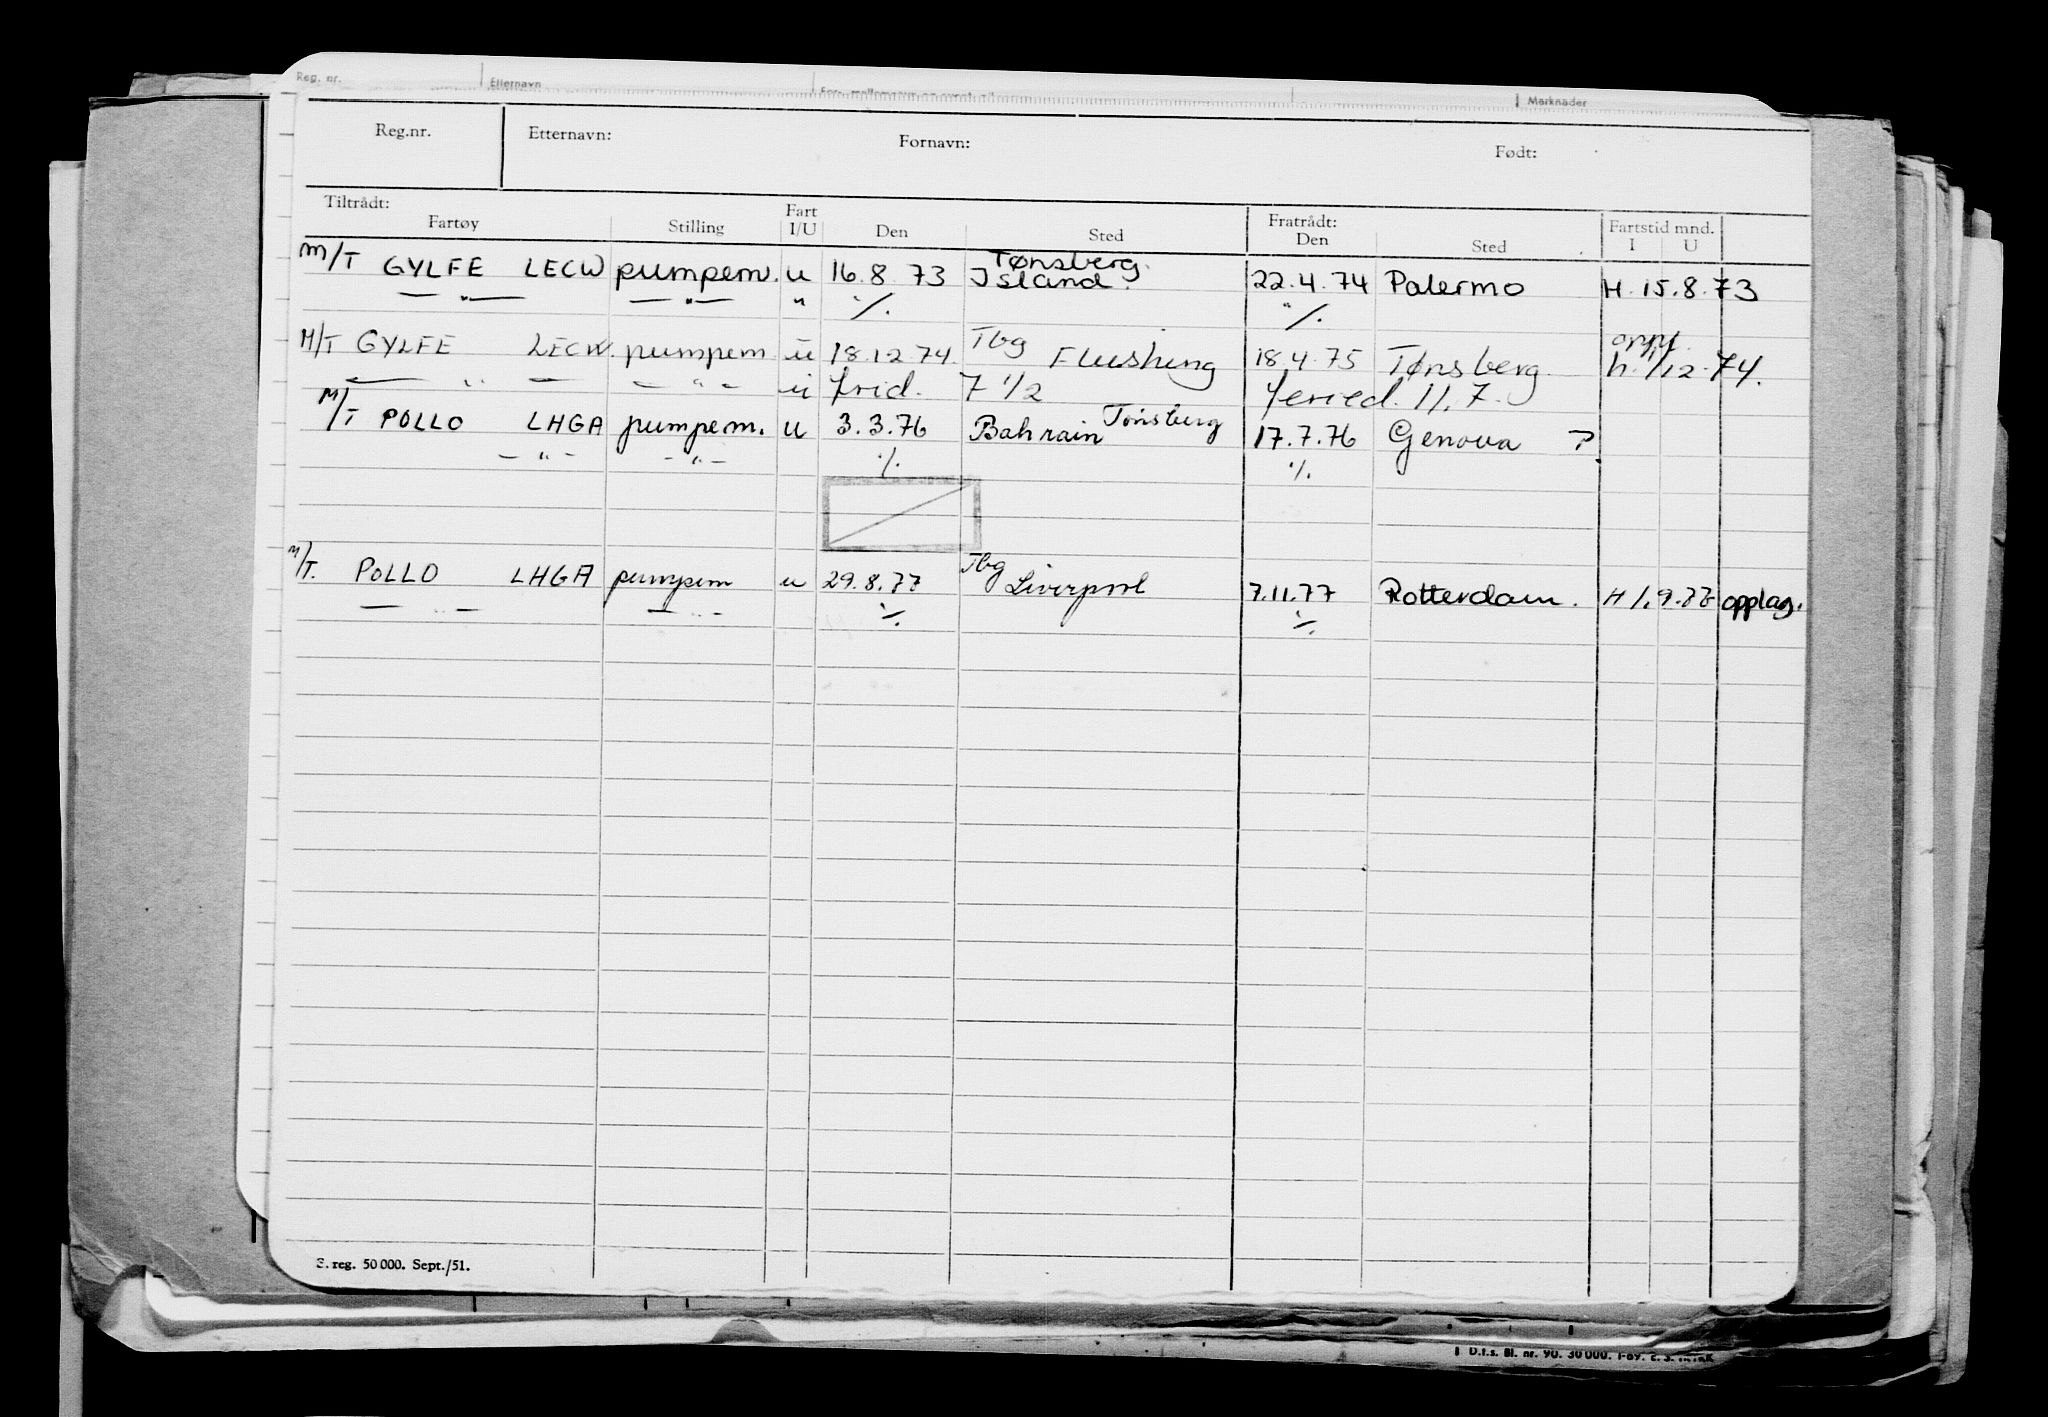 Reg. nr. Etternavn Merknader
Reg.nr. Etternavn: Fornavn: Født:
Tiltrådt: Fart Fratrådt: Fartstid mnd.
Fartøy Stilling I/U Den Sted Den Sted I U
Tønsberg.
M/T GYLFE LECW pumpem. u 16.8.73 Island. 22.4.74 Palermo H. 15.8.73
— " — — " — " ./. " ./.
M/T GYLFE LECW. pumpem u 18.12.74. Tbg Flushing 18.4.75 Tønsberg. h. 1/12.74.
— " — — " — u frid. 7 1/2 feried. 11.7.
M/T POLLO LHGA pumpem. u 3.3.76 Bahrain Tønsberg 17.7.76 Genova ?
— " — — " — ./. ./.
M/T. POLLO LHGA pumpem u 29.8.77 Tbg Liverpool 7.11.77 Rotterdam. H 1.9.77 opplag.
— " — — " — ./. ./.
S. reg. 50 000. Sept./51.
D.f.s. Bl. nr. 90. 30 000.